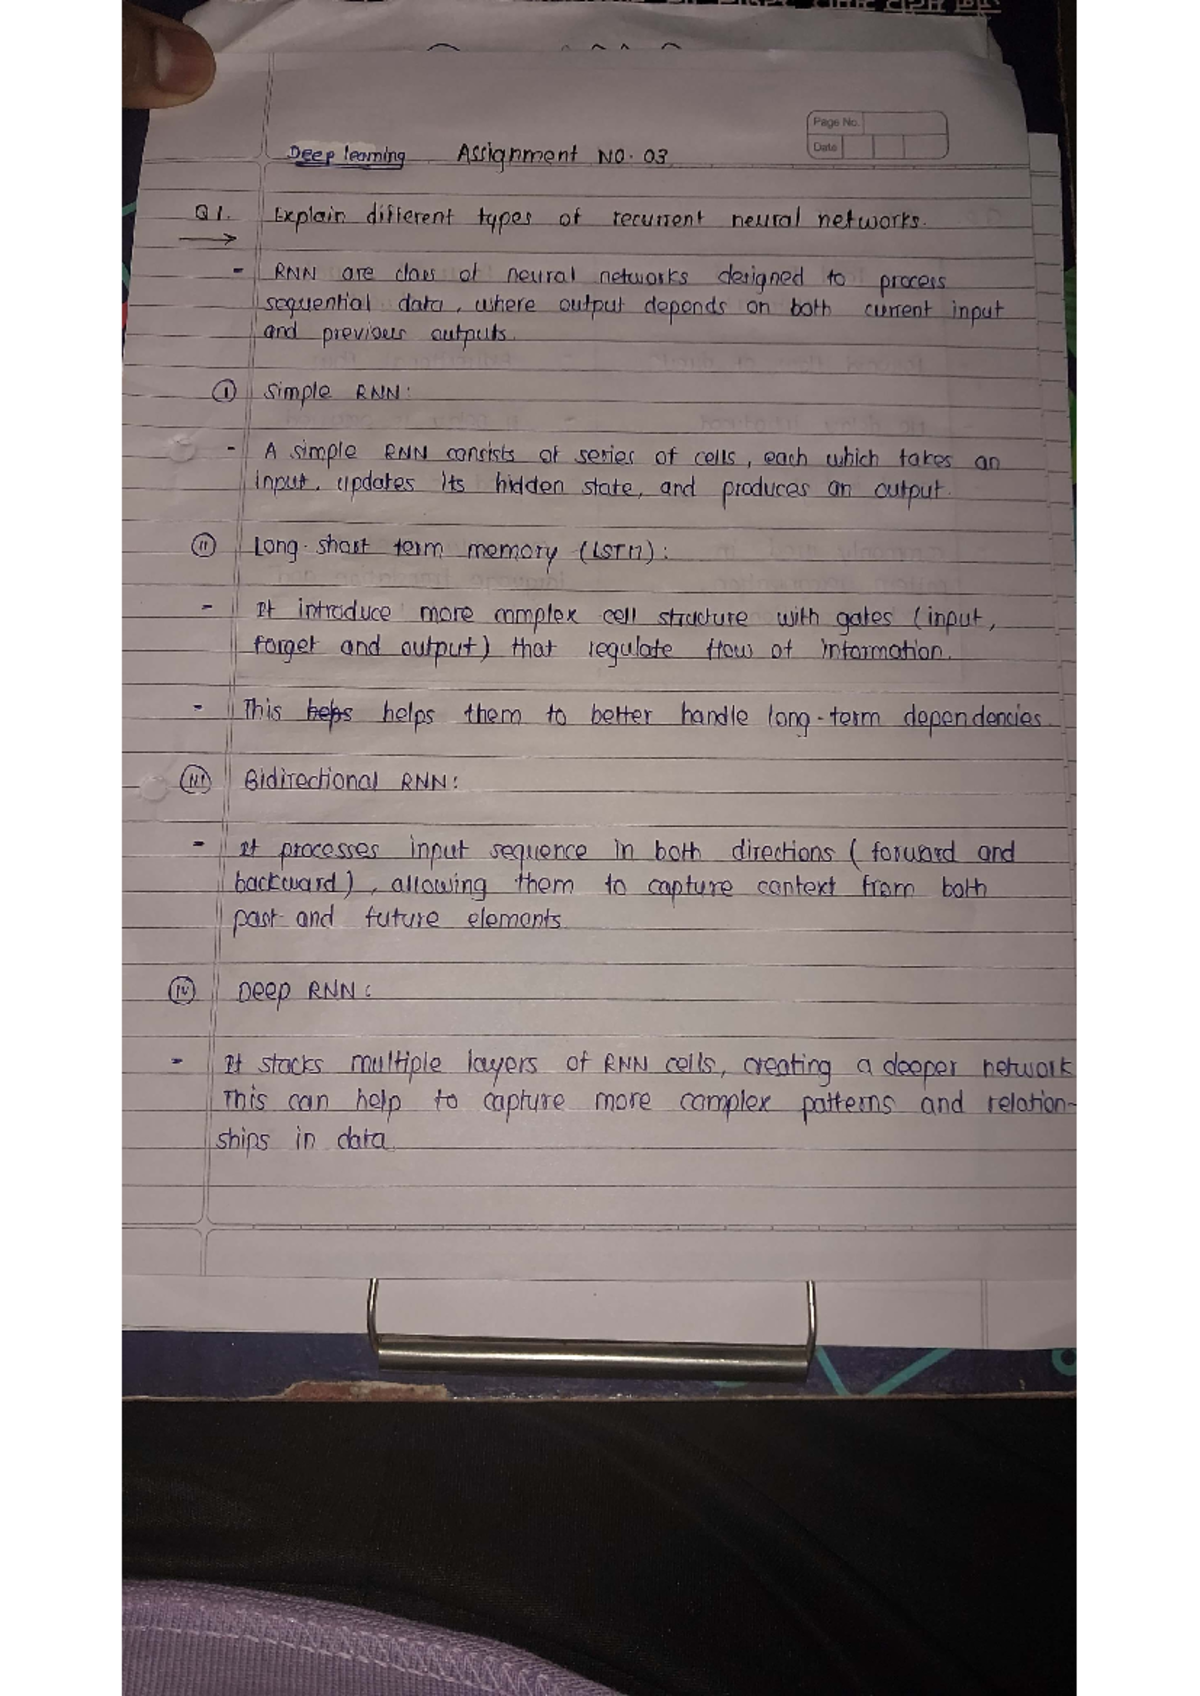 Page No.
Date
Deep learning Assignment NO. 03
Q1. Explain different types of recurrent neural networks.
- RNN are class of neural networks designed to process
sequential data, where output depends on both current input
and previous outputs.
(i) Simple RNN:
- A simple RNN consists of series of cells, each which takes an
input, updates its hidden state, and produces an output.
(ii) Long-short term memory (LSTM):
- It introduce more complex cell structure with gates (input,
forget and output) that regulate flow of information.
- This helps them to better handle long-term dependencies.
(iii) Bidirectional RNN:
- It processes input sequence in both directions (forward and
backward), allowing them to capture context from both
past and future elements
(iv) Deep RNN:
- It stacks multiple layers of RNN cells, creating a deeper network
This can help to capture more complex patterns and relation-
ships in data